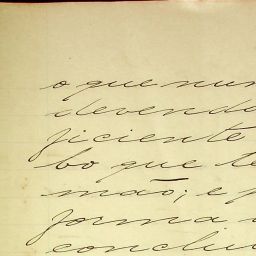 o que nun
devendo
ficiente
bo que te
mão; e p
forma
conclui